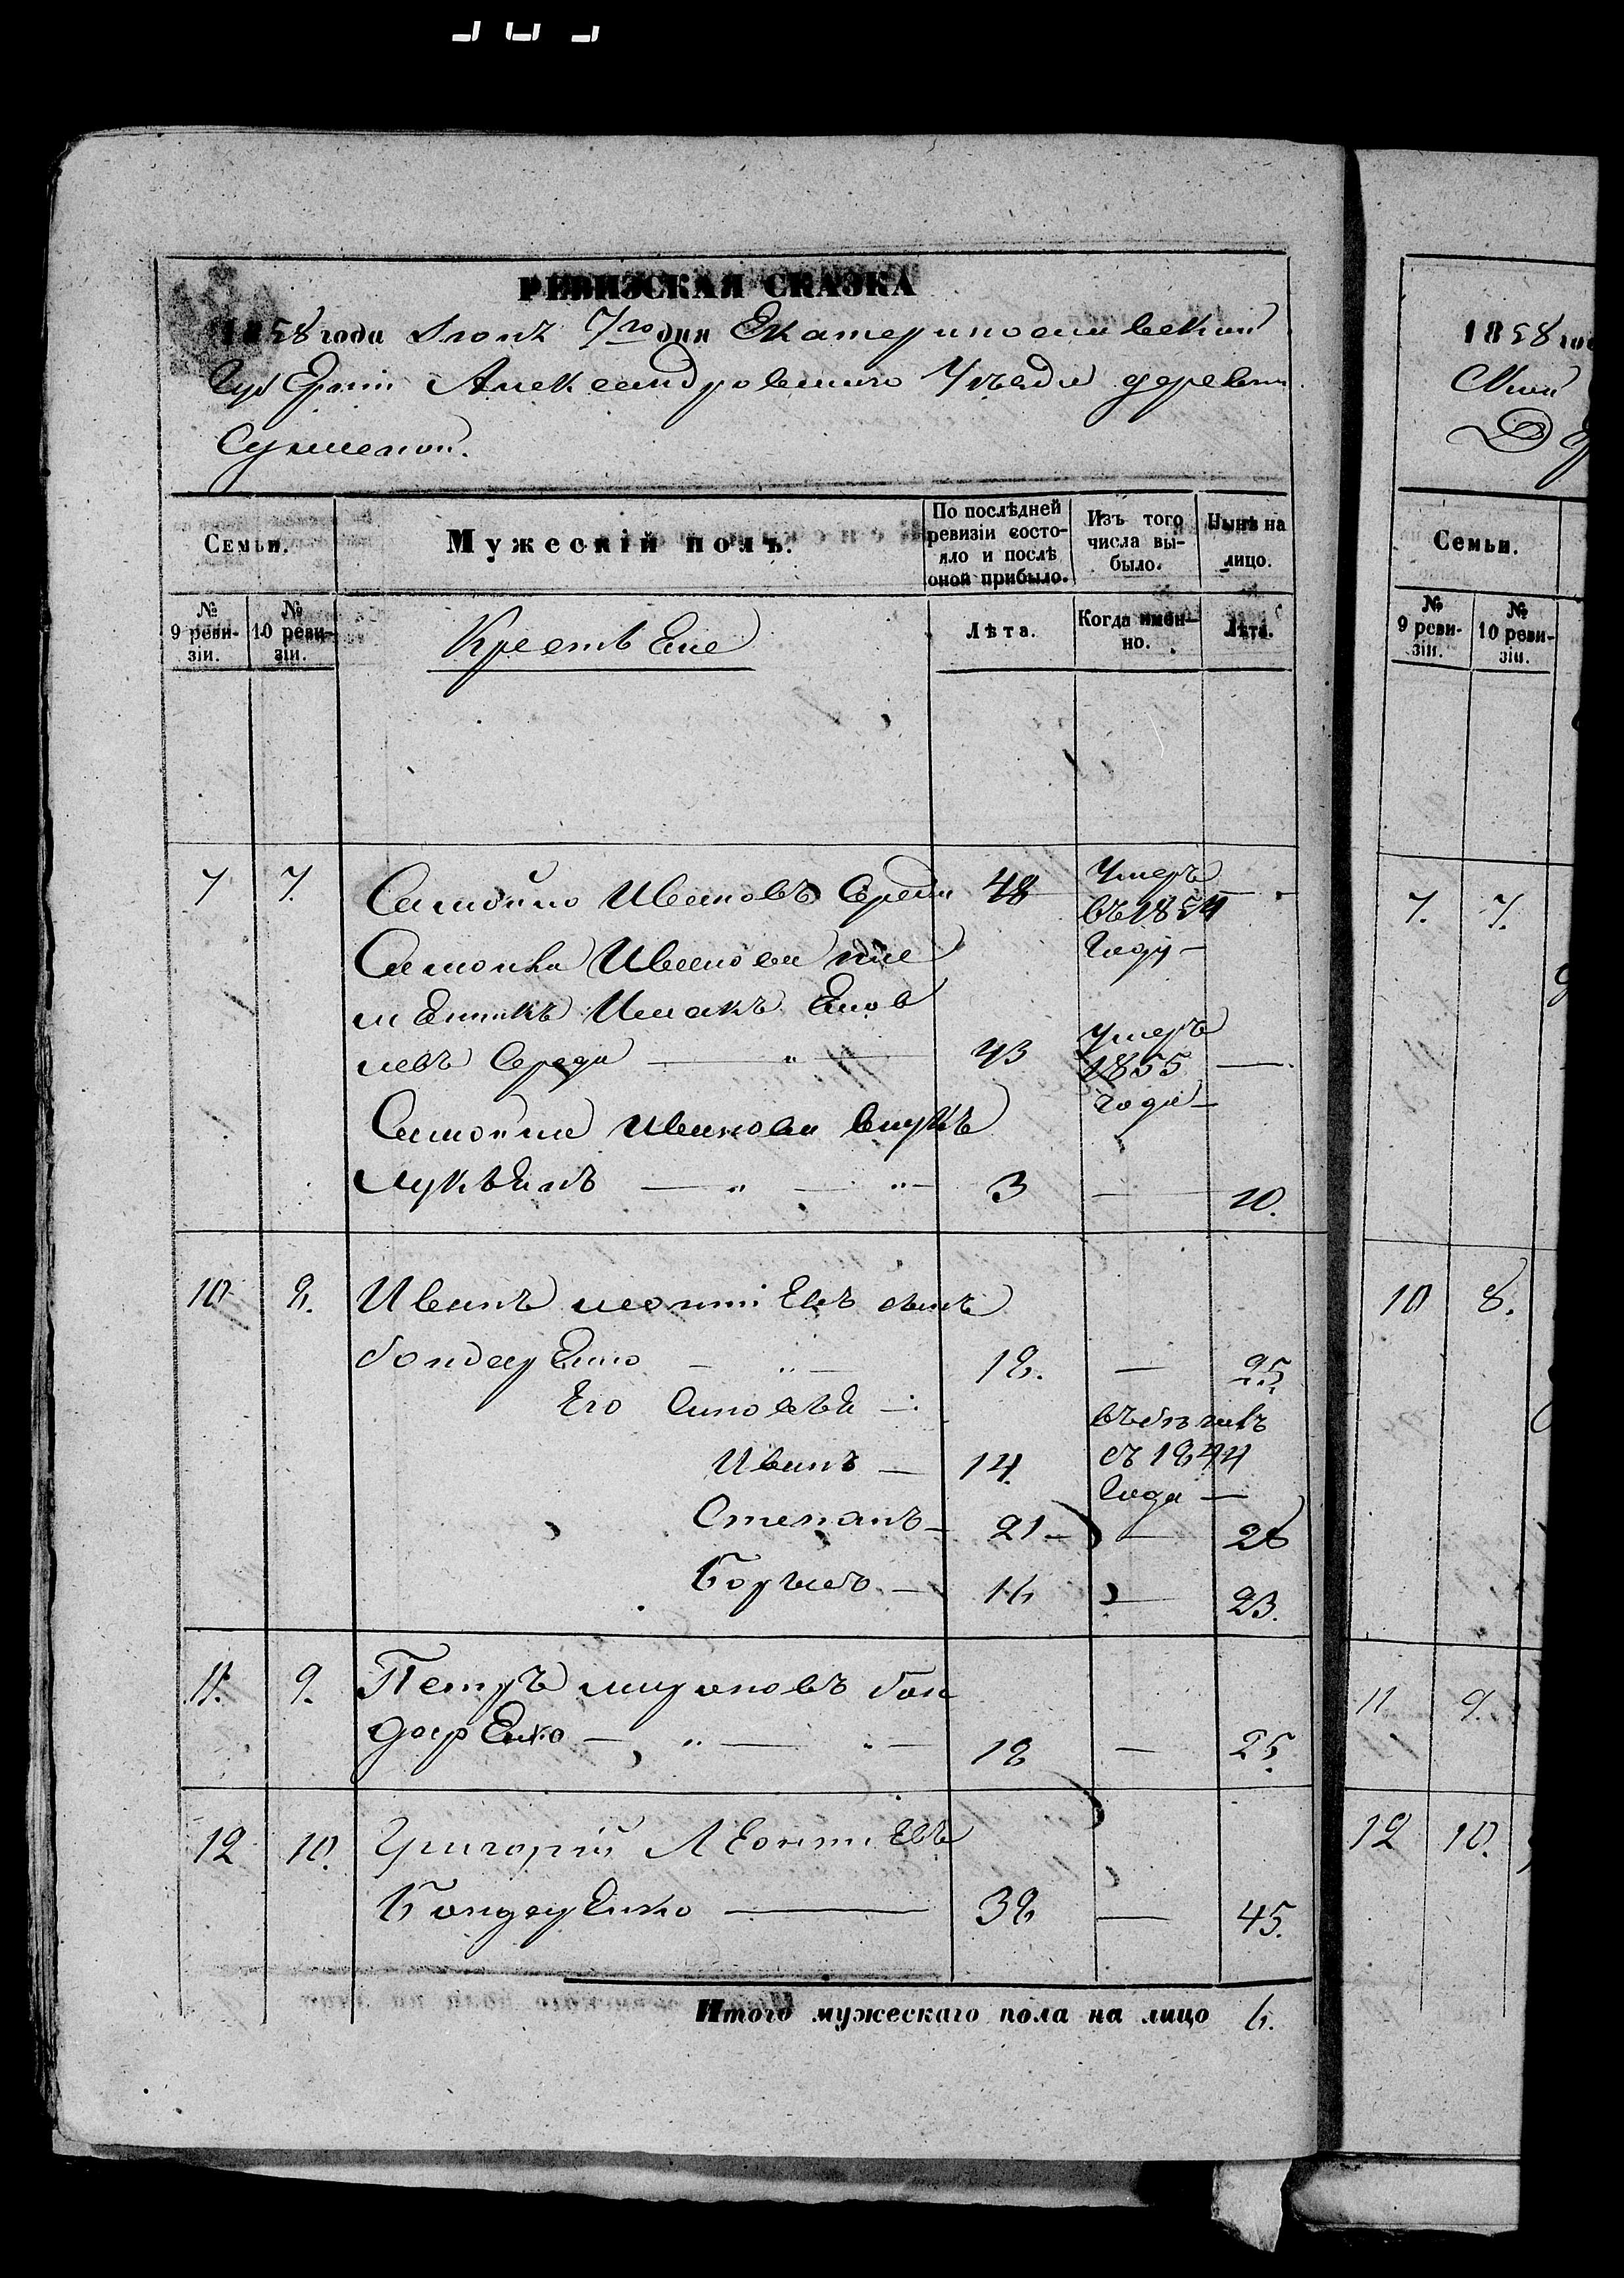 РЕВИЗСКАЯ СКАЗКА
1858 года Iюнь 7го дня Екатеринославской
Губернiи Александровскаго Уѣзда деревни
Семьи.
Мужескiй полъ.
По послѣдней ревизiи состояло и послѣ оной прибыло.
Изъ того числа выбыло.
Нынѣ на лицо.
№ 9 ревизiи.
№ 10 ревизiи.
Крестьяне
Лѣта.
Когда именно.
Лѣта.
7 7. Самойло Ивановъ Середа 48 Умеръ
въ 1854
Самойла Иванова пле году
менникъ
Середа 43 умеръ
1855
года
Самойла Иванова внукъ
Лукьянъ 3 — 10.
10 8. Иванъ Леонтiевъ сынъ
бондаренко 18. — 25
Его Сыновья
въ бѣгахъ
Иванъ — 14. съ 1844
года —
Степанъ — 21 — 28
Борисъ — 16 — 23.
11. 9. Петръ мироновъ бон
даренко 18 — 25.
12 10. Григорiй Леонтiевъ
Бондаренко 38 — 45.
Итого мужескаго пола на лицо 6.
1858 го
Семьи.
№ 9 ревизiи.
№ 10 ревизiи.
7. 7.
10 8.
11 9.
12 10.